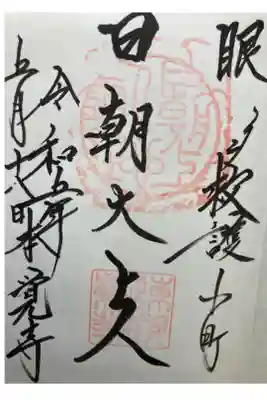 眼 救護 小町
日朝大上人
令和五年
五月 本覚寺